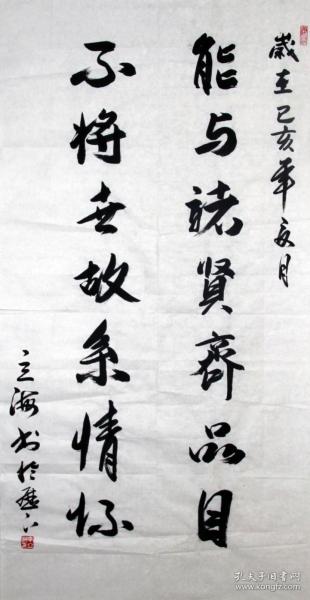 歲在己亥年夏月
能与諸賢齊品目
不將世故系情怀
立海书於歷下
孔夫子旧书网
www.kongfz.com